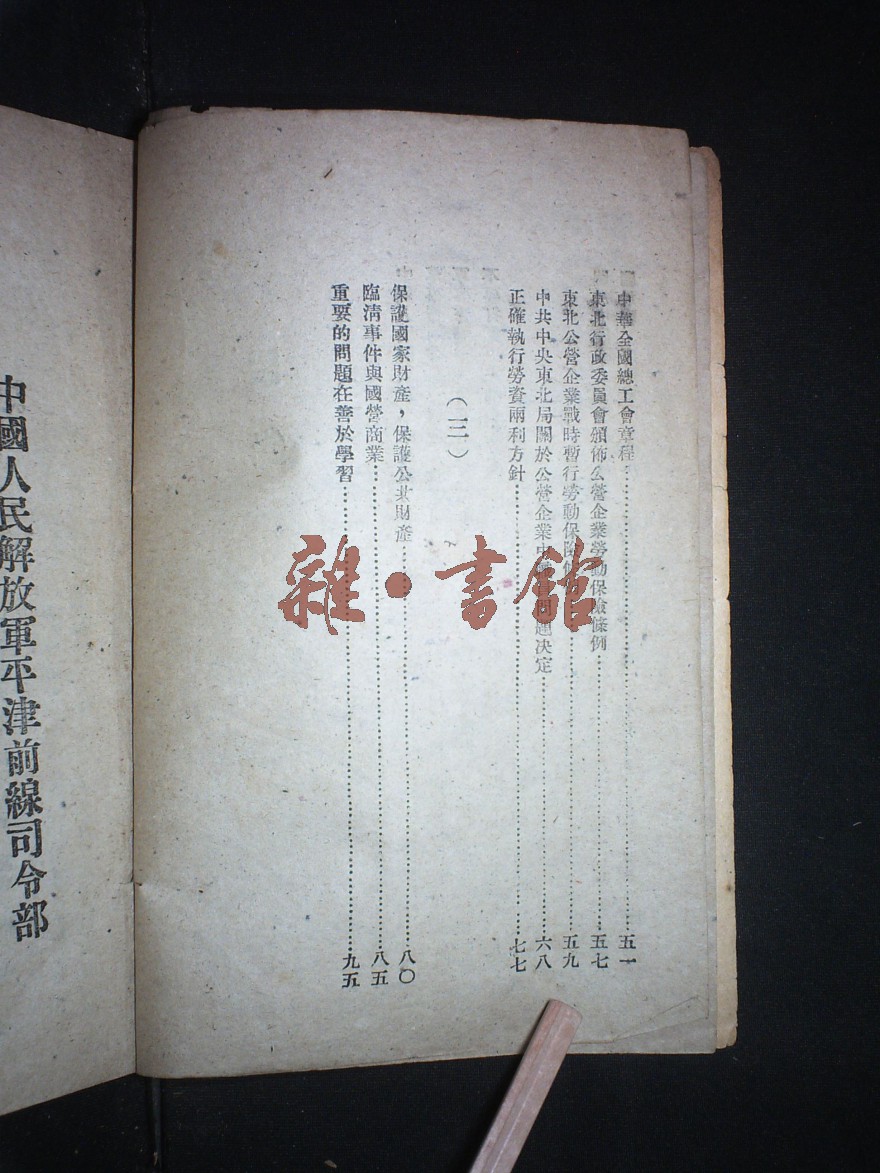 中華全國總工會章程……五一
東北行政委員會頒佈公營企業勞動保險條例……五七
東北公營企業戰時暫行勞動保險條例……五九
中共中央東北局關於公營企業中問題決定……六八
正確執行勞資兩利方針……七七
(三)
保護國家財產，保護公共財產……八〇
臨清事件與國營商業……八五
重要的問題在善於學習……九五
中國人民解放軍平津前線司令部
雜·書館